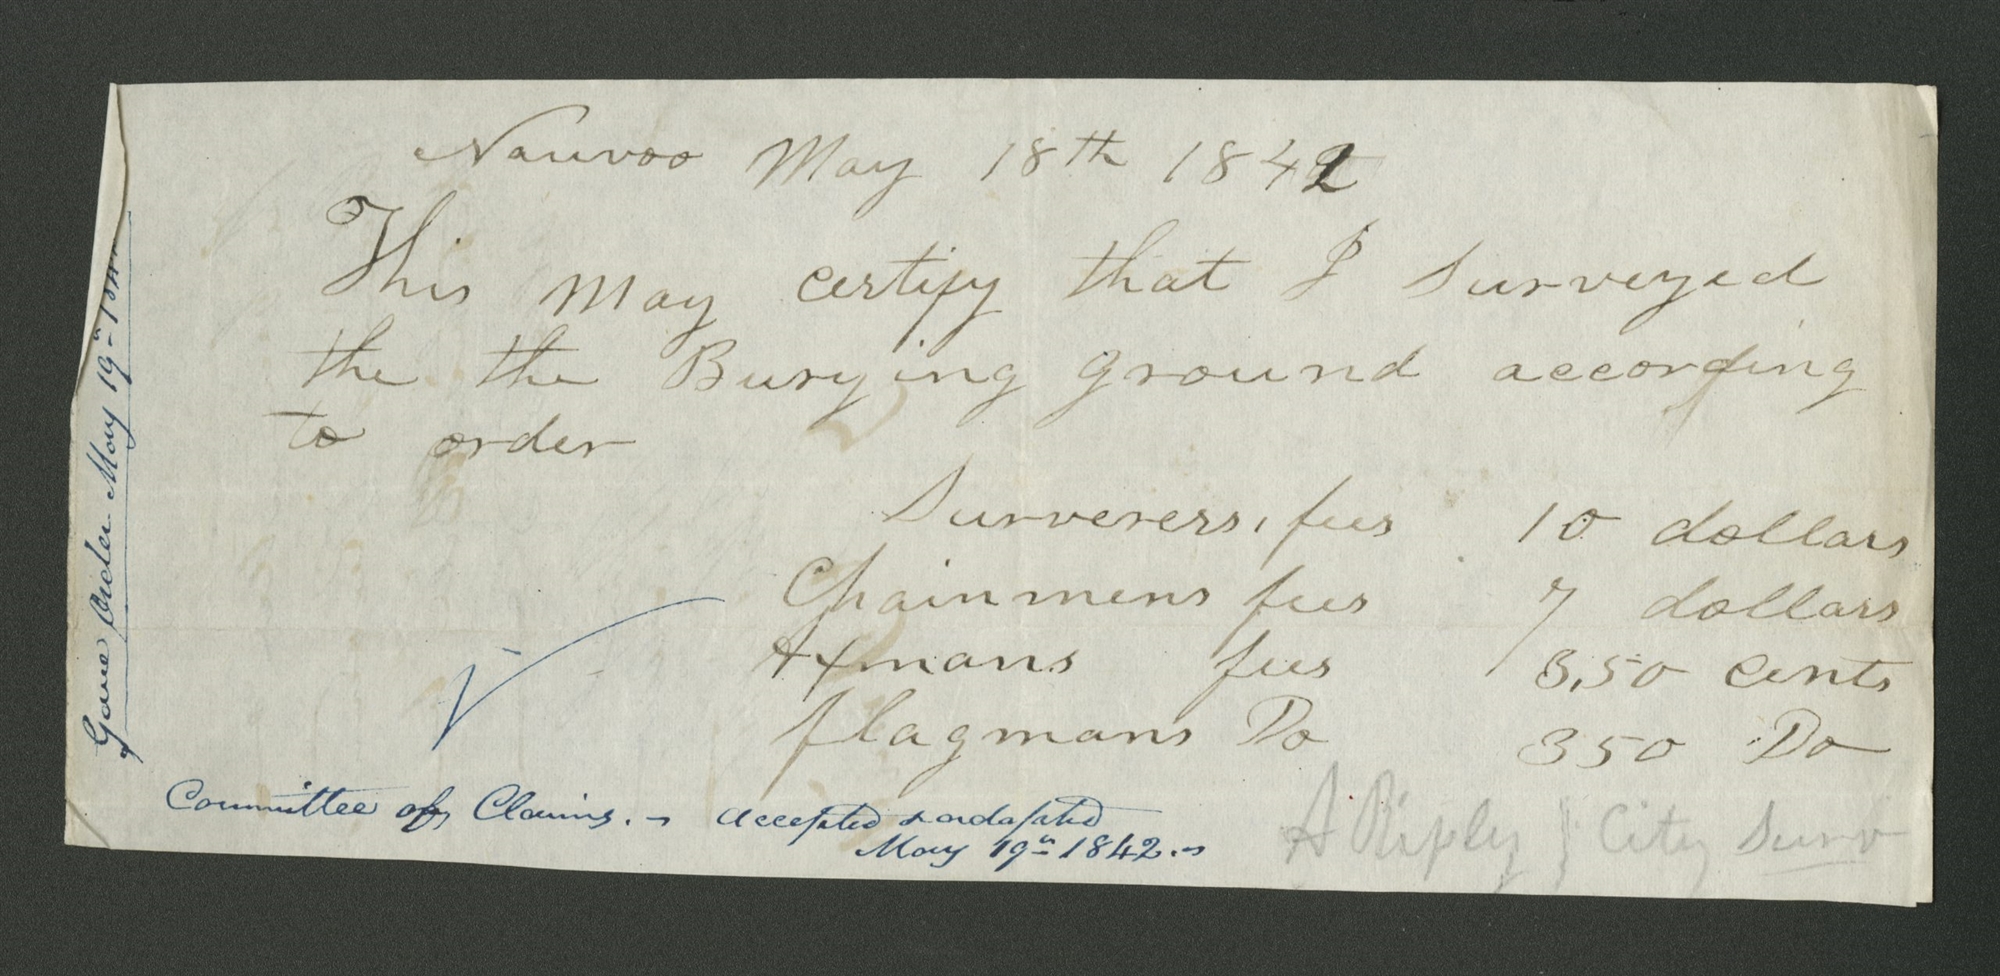 Nauvoo May 18th 1842
This may certify that I Surveyed
the the Burying ground according
to order
Surverers, fees 10 dollars
Chainmens fees 7 dollars
Axmans fees 3,50 cents
flagmans Do 350 Do
A Ripley } City Surv
Committee of Claims. accepted & adopted
May 19th 1842.
Gave Order May 19th 1842